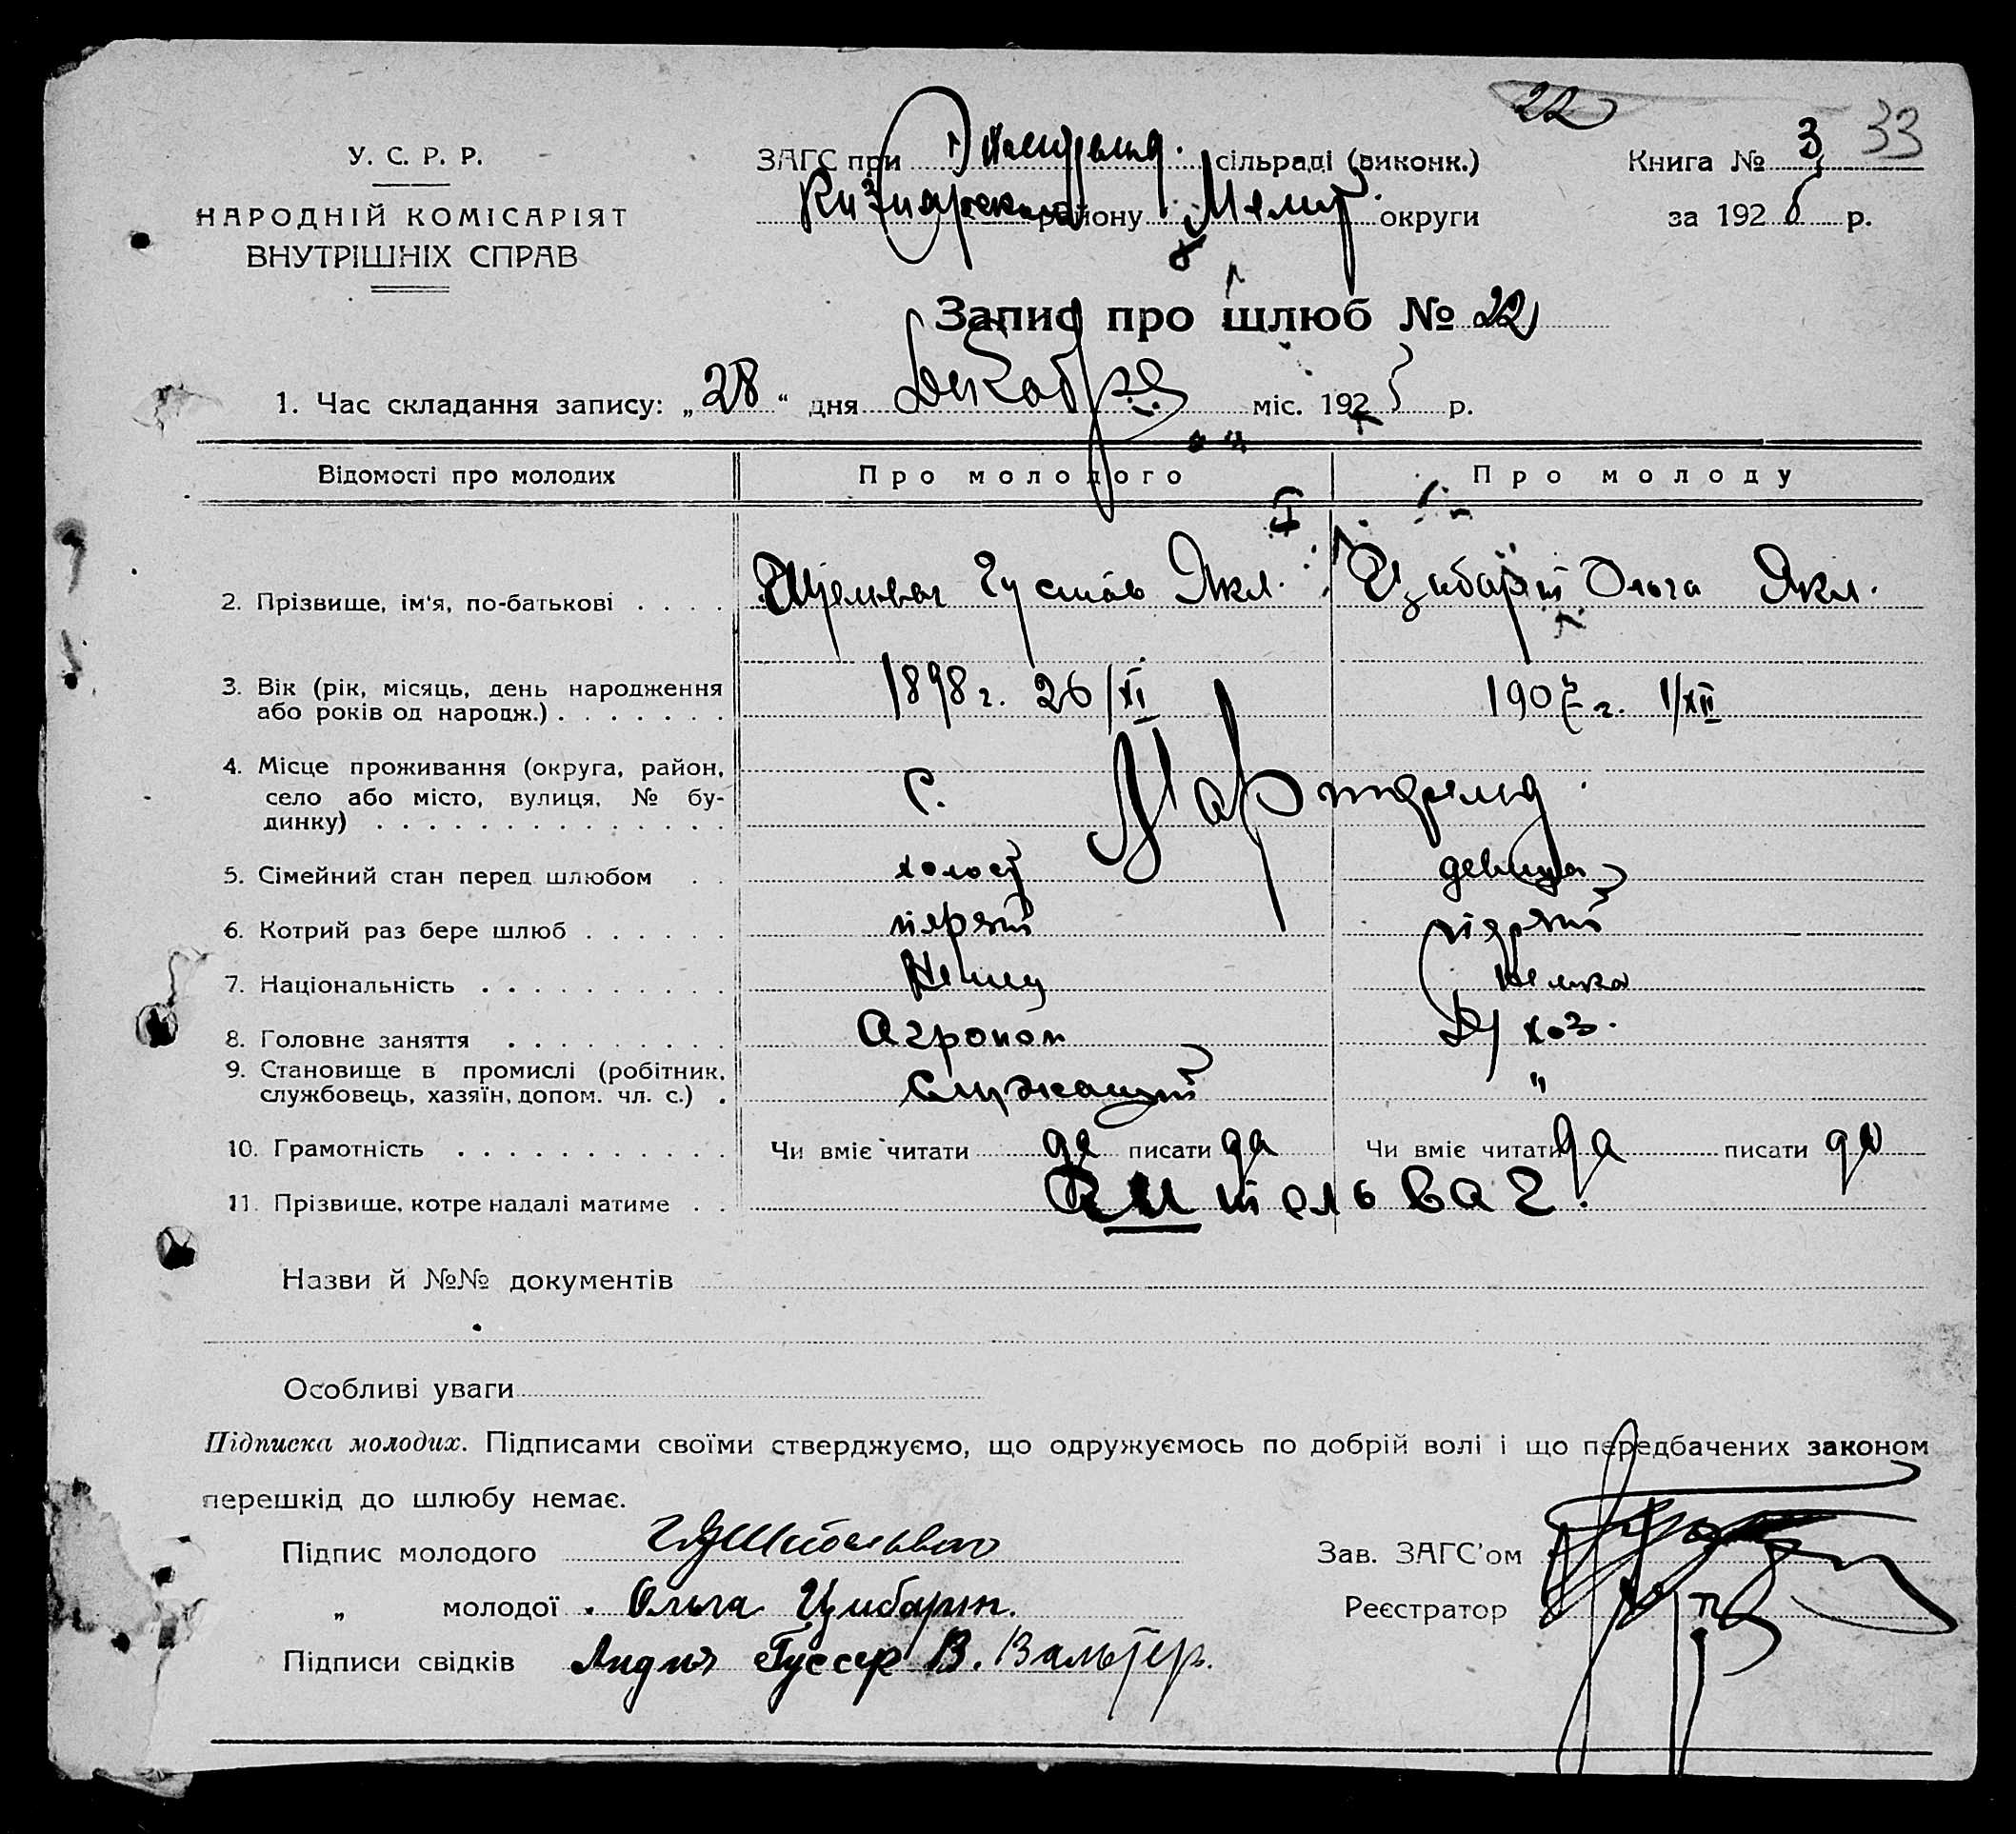 22
33
У. С. Р. Р.
НАРОДНІЙ КОМІСАРІЯТ
ВНУТРІШНІХ СПРАВ
ЗАГС при сільраді (виконк.)
району Мелит. округи
Книга № 3
за 1925 р.
Запис про шлюб № 22
1. Час складання запису: „28“ дня Декабря міс. 1925 р.
Відомості про молодих Про молодого Про молоду
2. Прізвище, ім'я, по-батькові . . . . Штельваг Густав Якл. Цимбарт Ольга Якл.
3. Вік (рік, місяць, день народження 1898 г. 26/XI 1907 г. 1/XII
або років од народж.) . . . . . . .
4. Місце проживання (округа, район, с. Мартфельд
село або місто, вулиця, № бу-
динку) . . . . . . . . . . . . . .
5. Сімейний стан перед шлюбом . . холост девица
6. Котрий раз бере шлюб . . . . . . первый первый
7. Національність . . . . . . . . . . Немец Немка
8. Головне заняття . . . . . . . . . Агроном хоз.
9. Становище в промислі (робітник, Служащий "
службовець, хазяїн, допом. чл. с.) .
10. Грамотність . . . . . . . . . . . Чи вміє читати да писати да Чи вміє читати да писати да
11. Прізвище, котре надалі матиме . . Штельваг.
Назви й №№ документів
Особливі уваги
Підписка молодих. Підписами своїми стверджуємо, що одружуємось по добрій волі і що передбачених законом
перешкід до шлюбу немає.
Підпис молодого Г Я Штельваг
Зав. ЗАГС'ом
„ молодої Ольга Цимбарт.
Реєстратор
Підписи свідків Лидия Гуссер В. Вальтер.